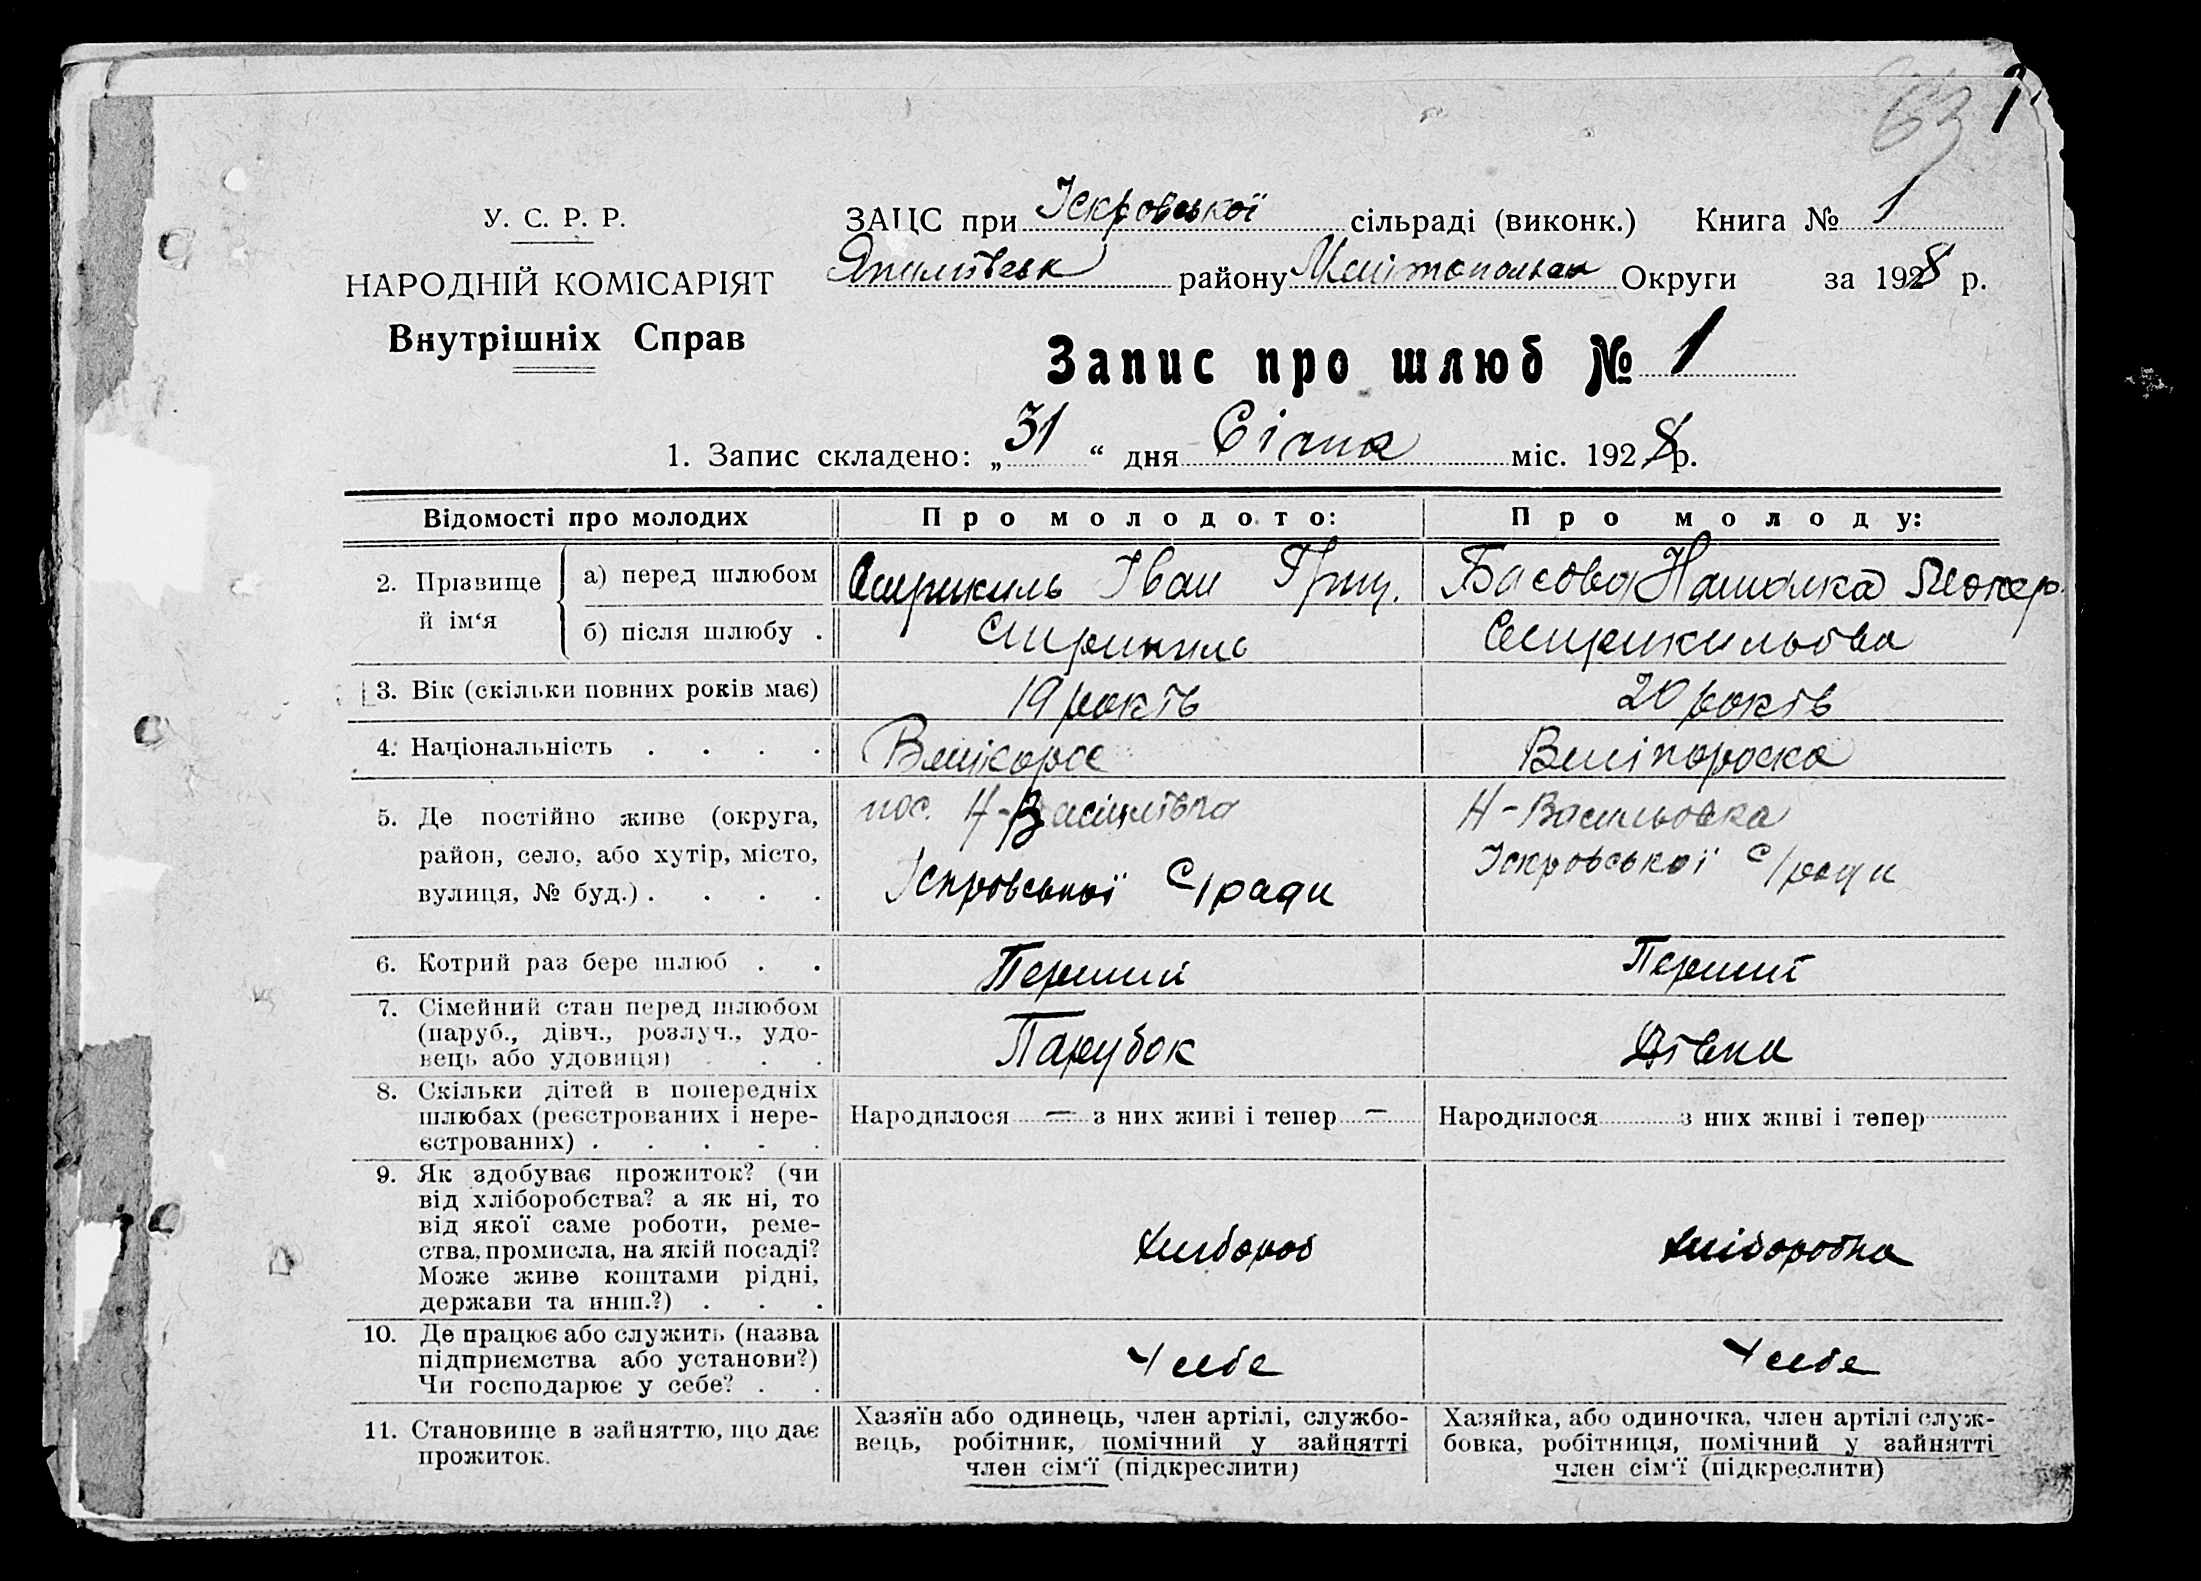 63 1
У. С. Р. Р.
НАРОДНІЙ КОМІСАРІЯТ
Внутрішніх Справ
ЗАЦС при Іскровської сільраді (виконк.) Книга № 1
району Мелітопольск Округи за 1928 р.
Запис про шлюб № 1
1. Запис складено: „31“ дня Січня міс. 1928 р.
Відомості про молодих
Про молодого:
Про молоду:
2. Прізвище й ім‘я
а) перед шлюбом
Іван Григ.
Басова Наталка
б) після шлюбу .
3. Вік (скільки повних років має)
19 років
20 років
4. Національність . . . .
Велікорос
Велікороска
5. Де постійно живе (округа,
район, село, або хутір, місто,
вулиця, № буд.) . . . .
пос. Н-Васілівка
Іскровської С/ради
Н-Васильовка
Іскровської С/ради
6. Котрий раз бере шлюб . .
Перший
Перший
7. Сімейний стан перед шлюбом
(паруб., дівч., розлуч., удо-
вець або удовиця) . . .
Парубок
Дівка
8. Скільки дітей в попередніх
шлюбах (реєстрованих і нере-
єстрованих) . . . . .
Народилося — з них живі і тепер —
Народилося з них живі і тепер
9. Як здобуває прожиток? (чи
від хліборобства? а як ні, то
від якої саме роботи, реме-
ства, промисла, на якій посаді?
Може живе коштами рідні,
держави та инш.?) . . .
Хлібороб
Хліборобка
10. Де працює або служить (назва
підприємства або установи?)
Чи господарює у себе? . .
У себе
У себе
11. Становище в зайняттю, що дає
прожиток.
Хазяїн або одинець, член артілі, службо-
вець, робітник, помічний у зайнятті
член сім‘ї (підкреслити)
Хазяйка, або одиночка, член артілі служ-
бовка, робітниця, помічний у зайнятті
член сім‘ї (підкреслити)